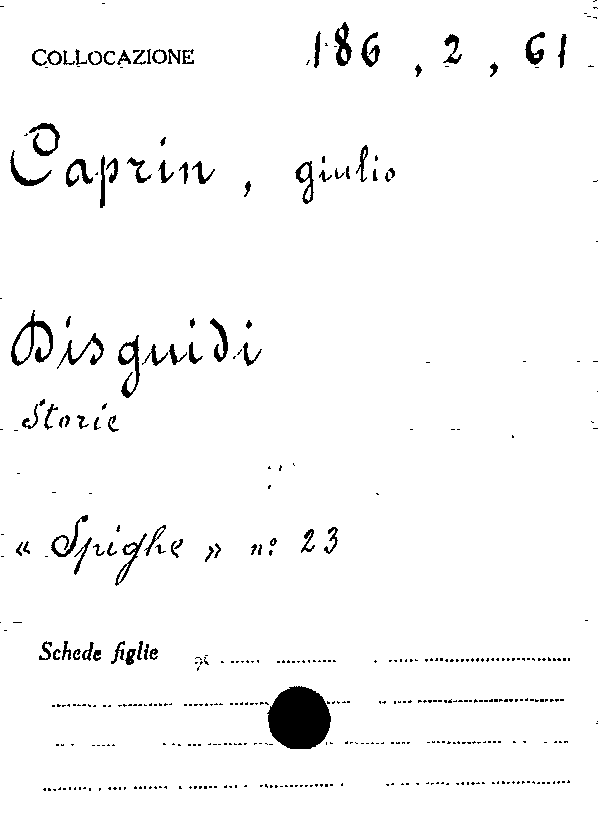 COLLOCAZIONE 186, 2, 61
Caprin, giulio
Disguidi
Storie
« Spighe » n: 23
Schede figlie